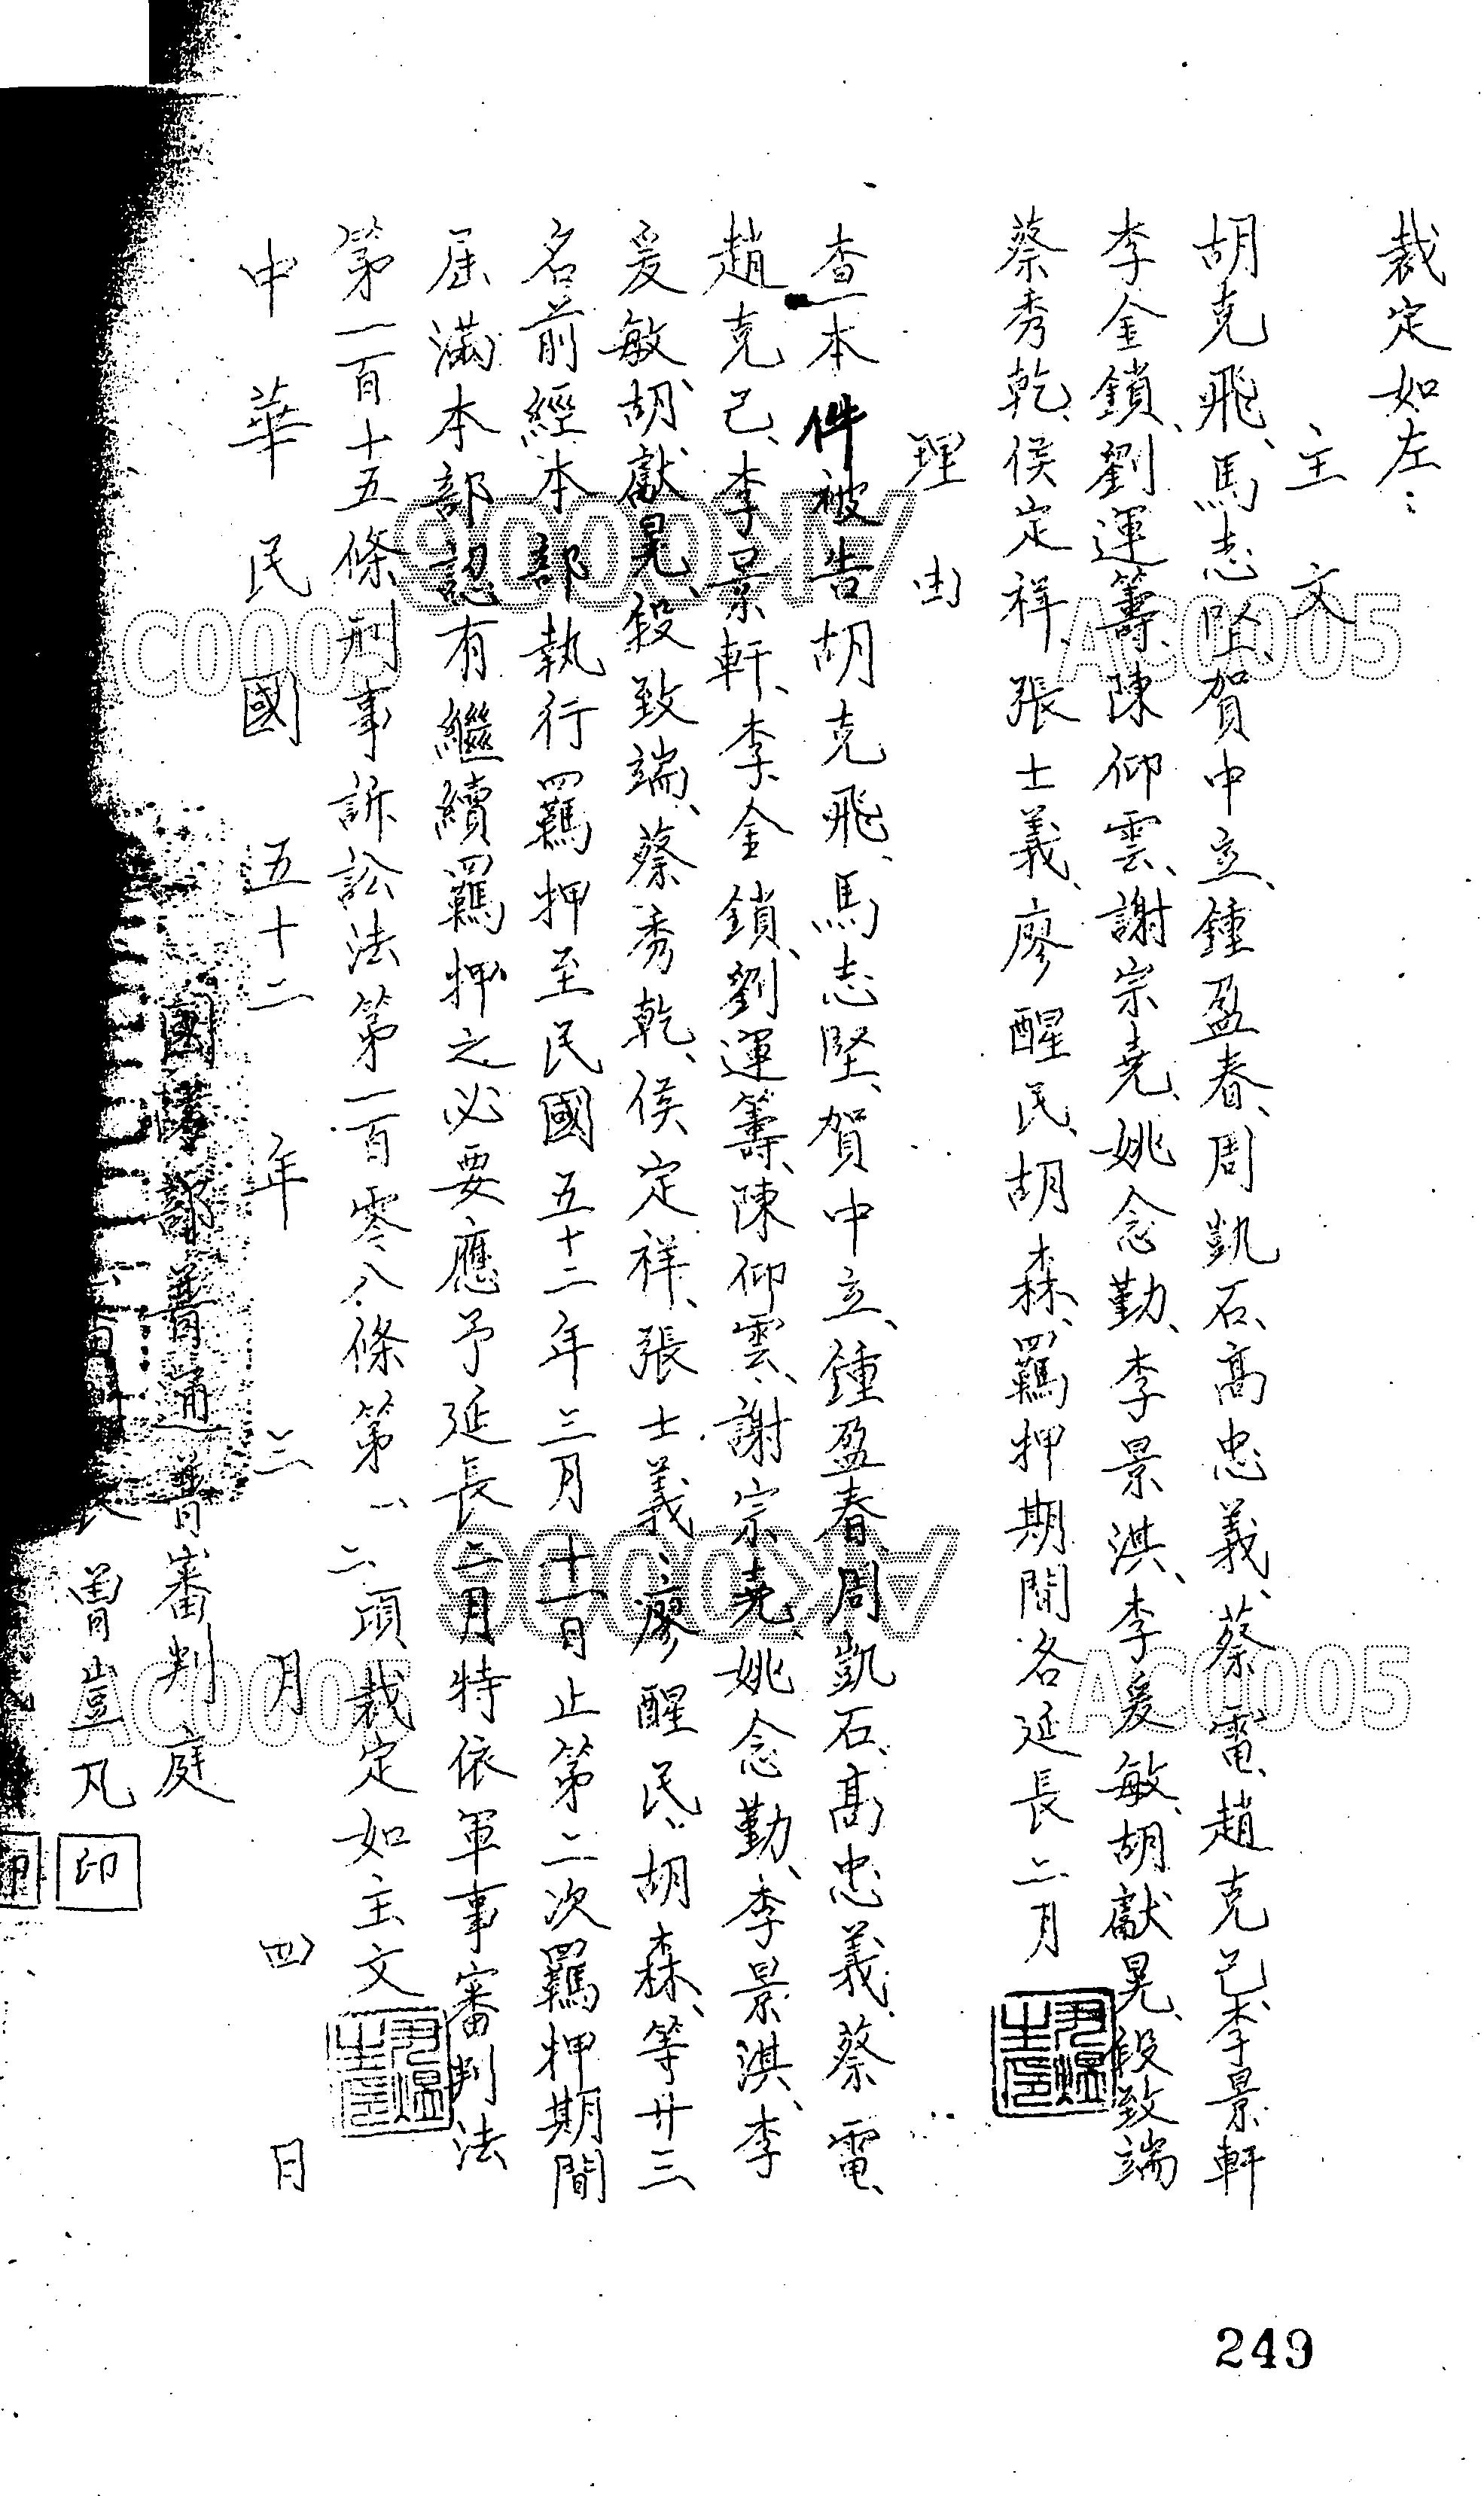 裁定如左：
主文
胡克飛、馬志堅、賀中立、鍾盈春、周凱石、高忠義、蔡電、趙克己、李景軒
李金鎖、劉運籌、陳仰雲、謝宗堯、姚念勤、李景淇、李爰敏、胡獻晃、段致端
蔡秀乾、侯定祥、張士義、廖醒民、胡森、羈押期間各延長二月
理由
查本件被告胡克飛、馬志堅、賀中立、鍾盈春、周凱石、高忠義、蔡電、
趙克己、李景軒、李金鎖、劉運籌、陳仰雲、謝宗堯、姚念勤、李景淇、李
爰敏、胡獻晃、段致端、蔡秀乾、侯定祥、張士義、廖醒民、胡森、等廿三
名前經本部執行羈押至民國五十二年三月十一日止第二次羈押期間
屆滿本部認有繼續羈押之必要應予延長二月特依軍事審判法
第一百十五條刑事訴訟法第一百零八條第一、二項裁定如主文
中華民國五十二年三月四日
國防部普通審判庭
曾豈凡 印
印
AK0006
AC0005
C0005
AK0006
AC0005
AC0005
249